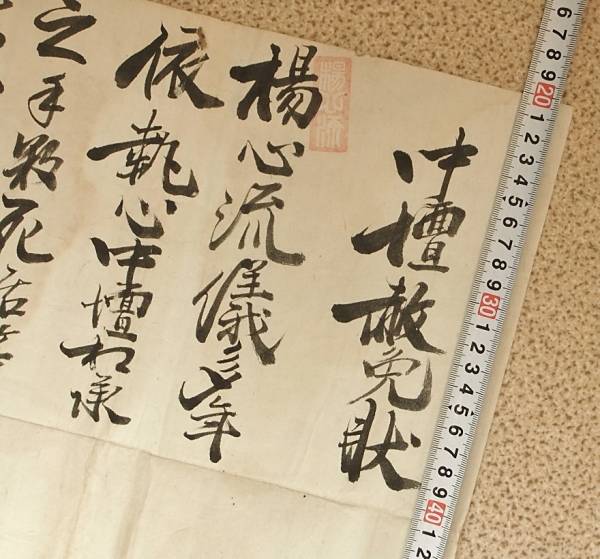 中檀赦免狀
楊心流
楊心流儀多年
依執心中壇相承
之手數死活
6 7 8 9 20 1 2 3 4 5 6 7 8 9 30 1 2 3 4 5 6 7 8 9 40 1